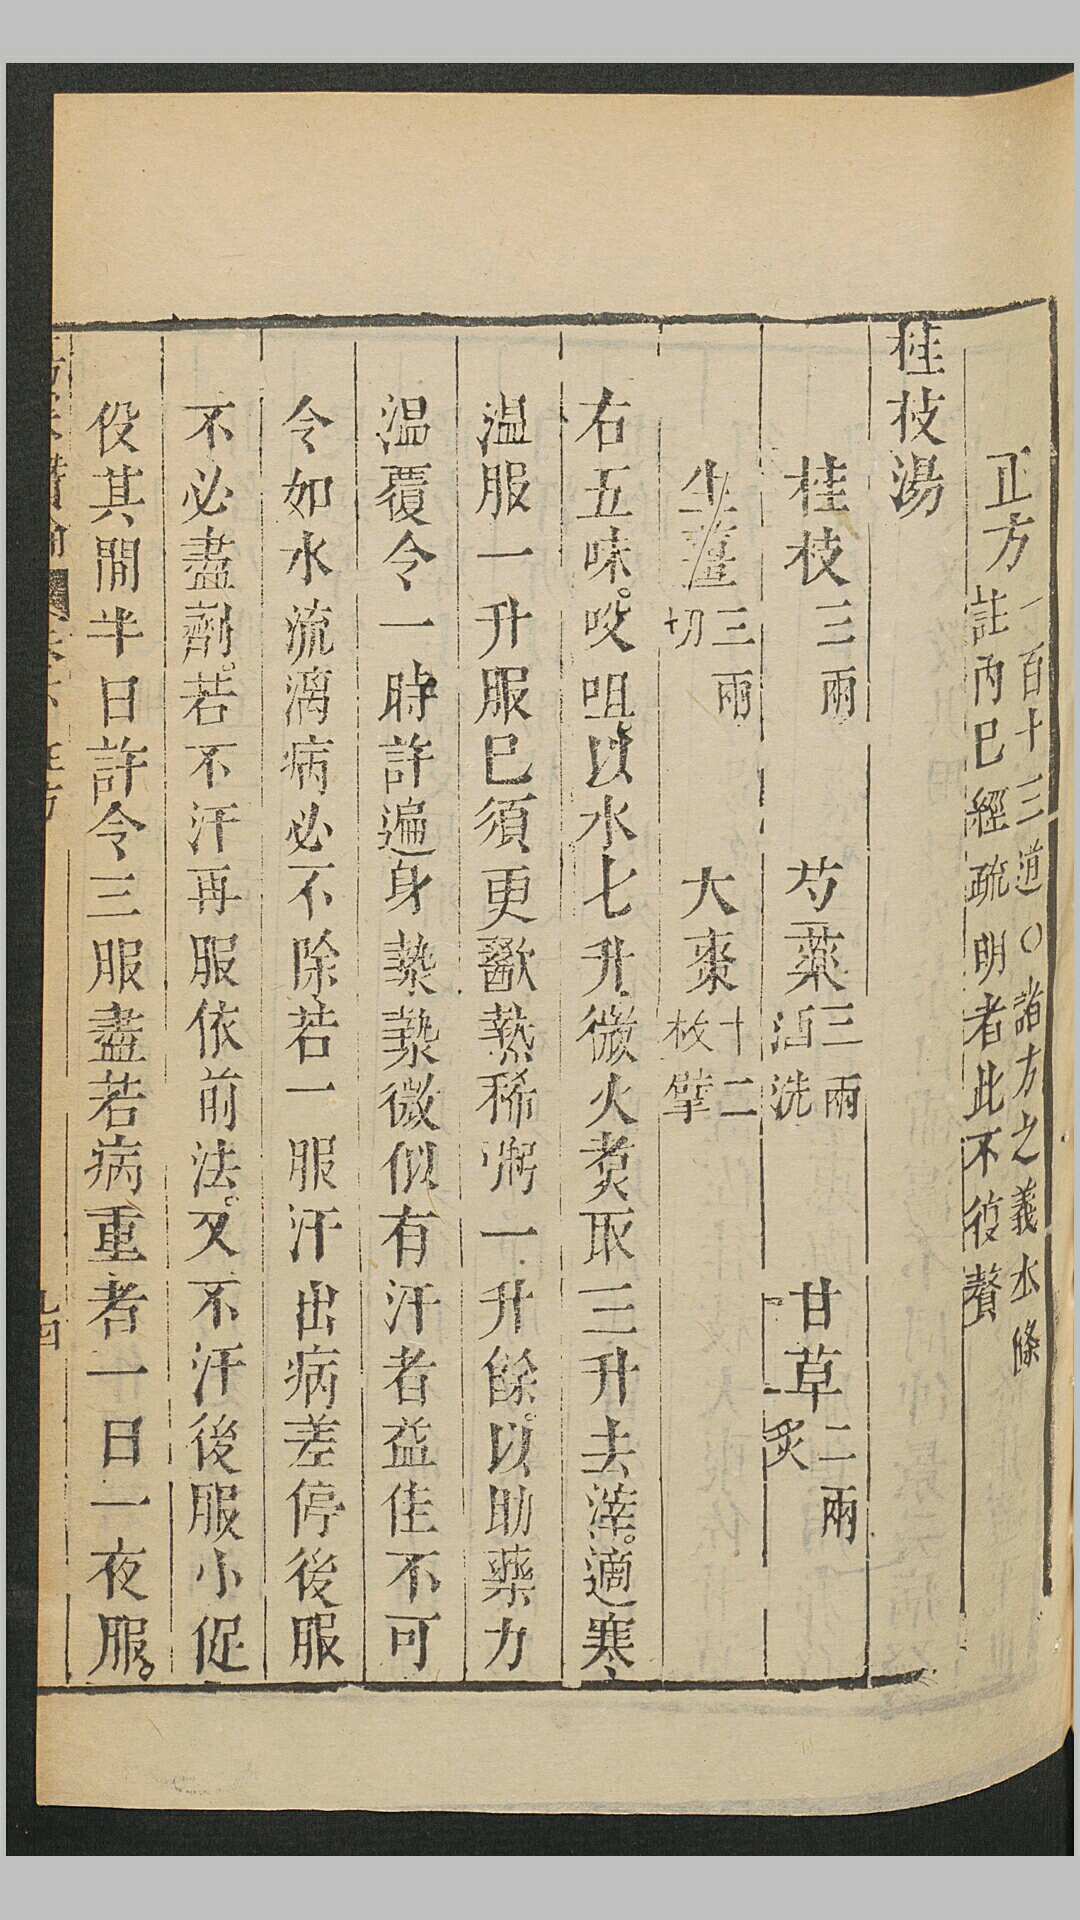 正方一百十三道〇諸方之義本條註內已經疏明者此不復贅
桂枝湯
桂枝三兩 芍藥三兩酒洗 甘草二兩炙
生薑三兩切 大棗十二枚擘
右五味。㕮咀。以水七升微火煑取三升去滓。適寒
温服一升服已須更歠熱稀粥一升餘。以助藥力
温覆令一時許遍身漐漐微似有汗者益佳不可
令如水流漓病必不除若一服汗出病差停後服
不必盡劑。若不汗再服依前法。又不汗後服小促
役其間半日許令三服盡若病重者一日一夜服。